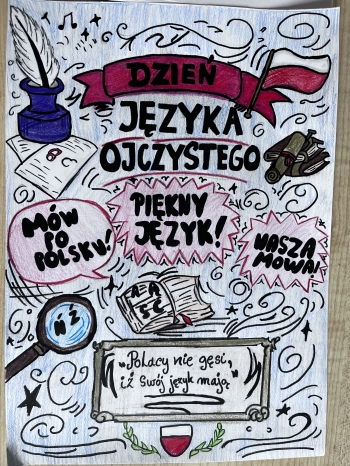 DZIEŃ
JĘZYKA
OJCZYSTEGO
MÓW
PO
POLSKU!
PIĘKNY
JĘZYK!
NASZA
MOWA!
A Ą
Ś Ć
Ń Ż
"Polacy nie gęsi,
iż swój język mają."